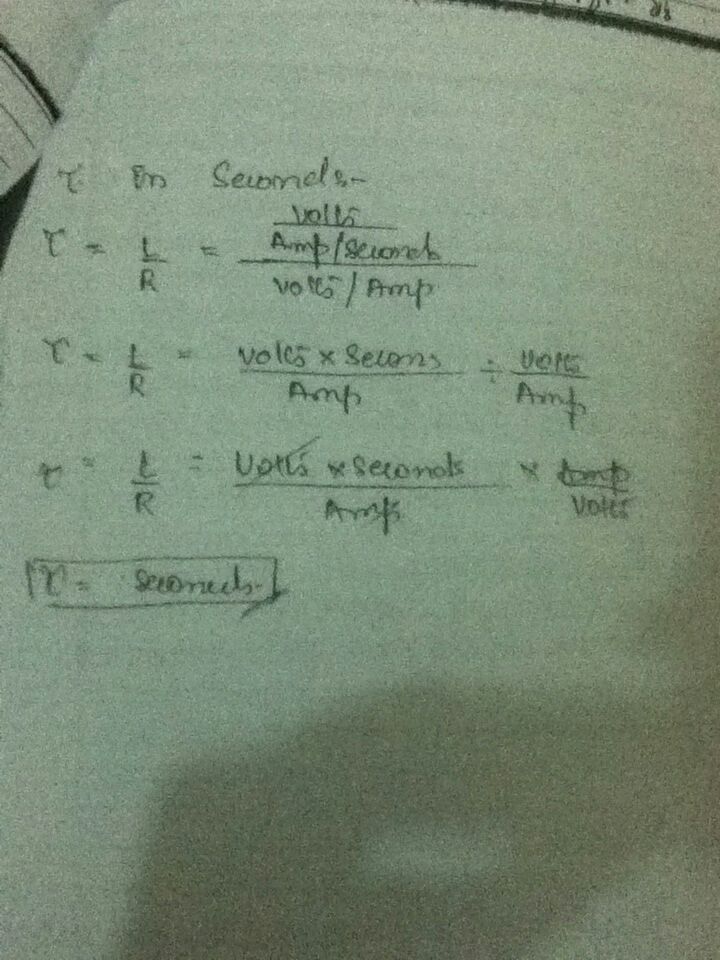 τ in Seconds-
τ = L/R = (Volts / (Amp/Seconds)) / (Volts/Amp)
τ = L/R = (Volts × Secons)/Amp ÷ Volts/Amp
τ = L/R = (Volts × Seconds)/Amps × Amp/Volts
τ = Seconds.